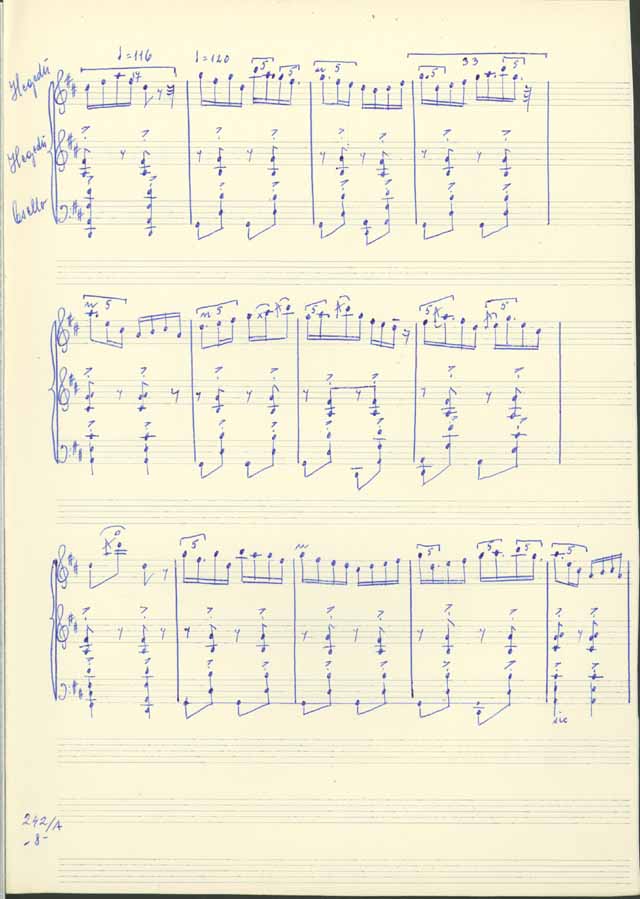 ♩=116 ♩=120
Hegedű
17 5 5 5 33 5 5
Hegedű
Cselló
5 5 5 5 5
5 5 5 5 5 5
sic
242/A
-8-